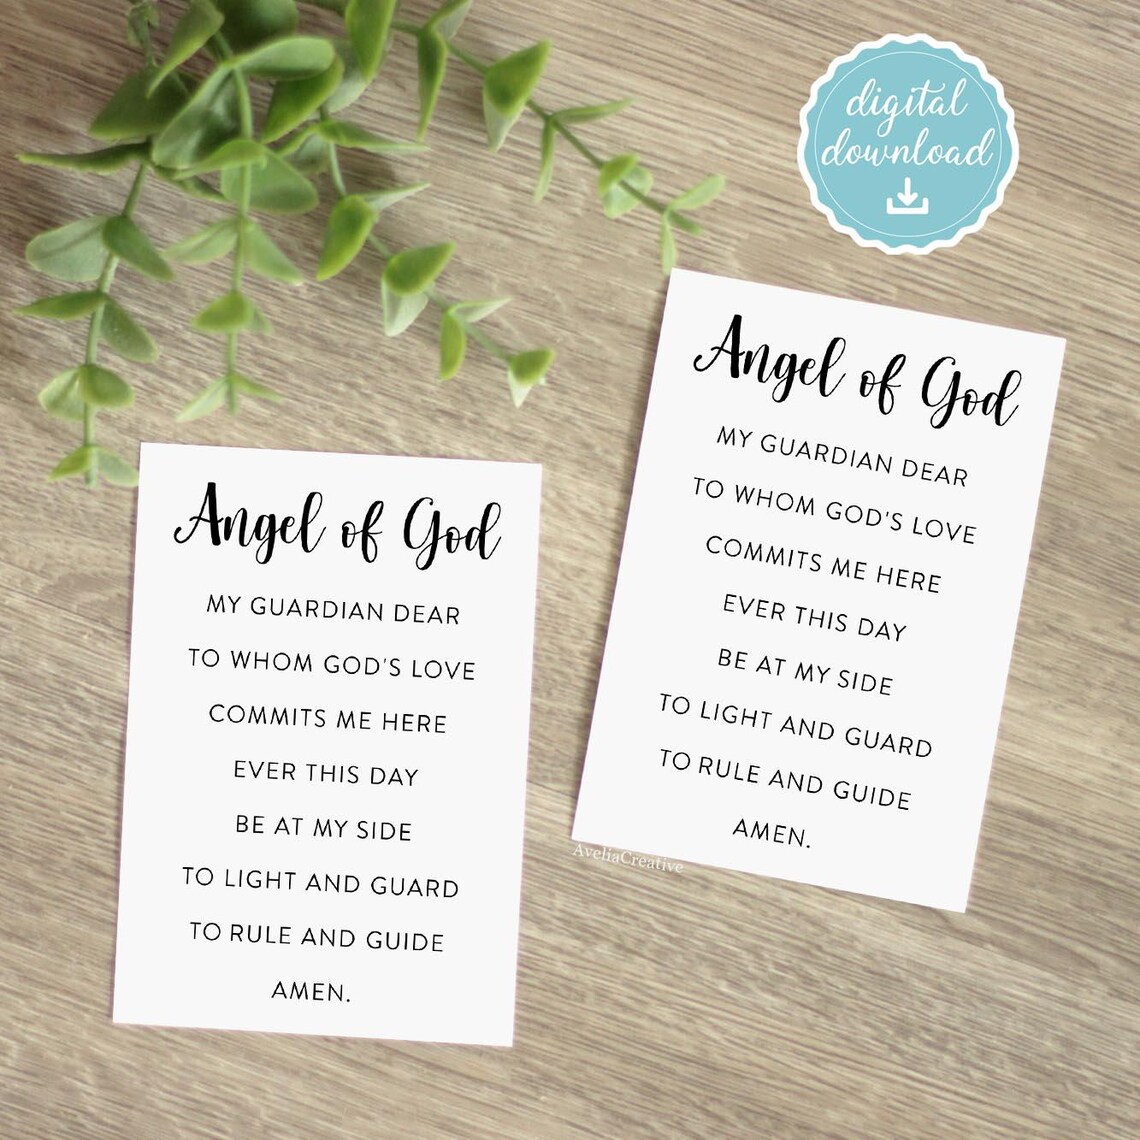 digital
download
Angel of God
MY GUARDIAN DEAR
TO WHOM GOD'S LOVE
COMMITS ME HERE
EVER THIS DAY
BE AT MY SIDE
TO LIGHT AND GUARD
TO RULE AND GUIDE
AMEN.
AveliaCreative
Angel of God
MY GUARDIAN DEAR
TO WHOM GOD'S LOVE
COMMITS ME HERE
EVER THIS DAY
BE AT MY SIDE
TO LIGHT AND GUARD
TO RULE AND GUIDE
AMEN.